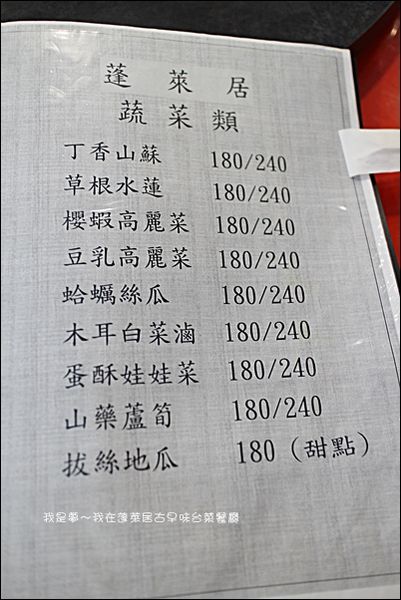 蓬萊居
蔬菜類
丁香山蘇 180/240
草根水蓮 180/240
櫻蝦高麗菜 180/240
豆乳高麗菜 180/240
蛤蠣絲瓜 180/240
木耳白菜滷 180/240
蛋酥娃娃菜 180/240
山藥蘆筍 180/240
拔絲地瓜 180（甜點）
我是夢～我在蓬萊居古早味台菜餐廳